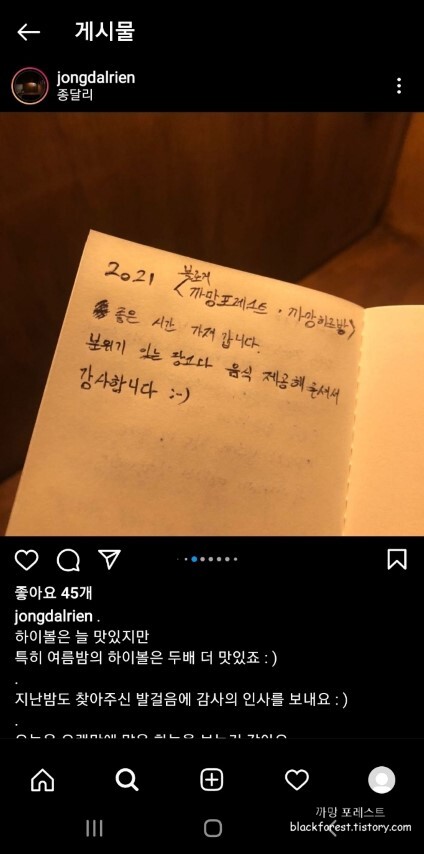 게시물
jongdalrien
종달리
2021 블로거
<까망포레스트 · 까망하르방>
좋은 시간 가져 갑니다.
분위기 있는 장소다 음식 제공해 주셔서
감사합니다 :-)
좋아요 45개
jongdalrien .
하이볼은 늘 맛있지만
특히 여름밤의 하이볼은 두배 더 맛있죠 : )
.
지난밤도 찾아주신 발걸음에 감사의 인사를 보내요 : )
.
까망 포레스트
blackforest.tistory.com